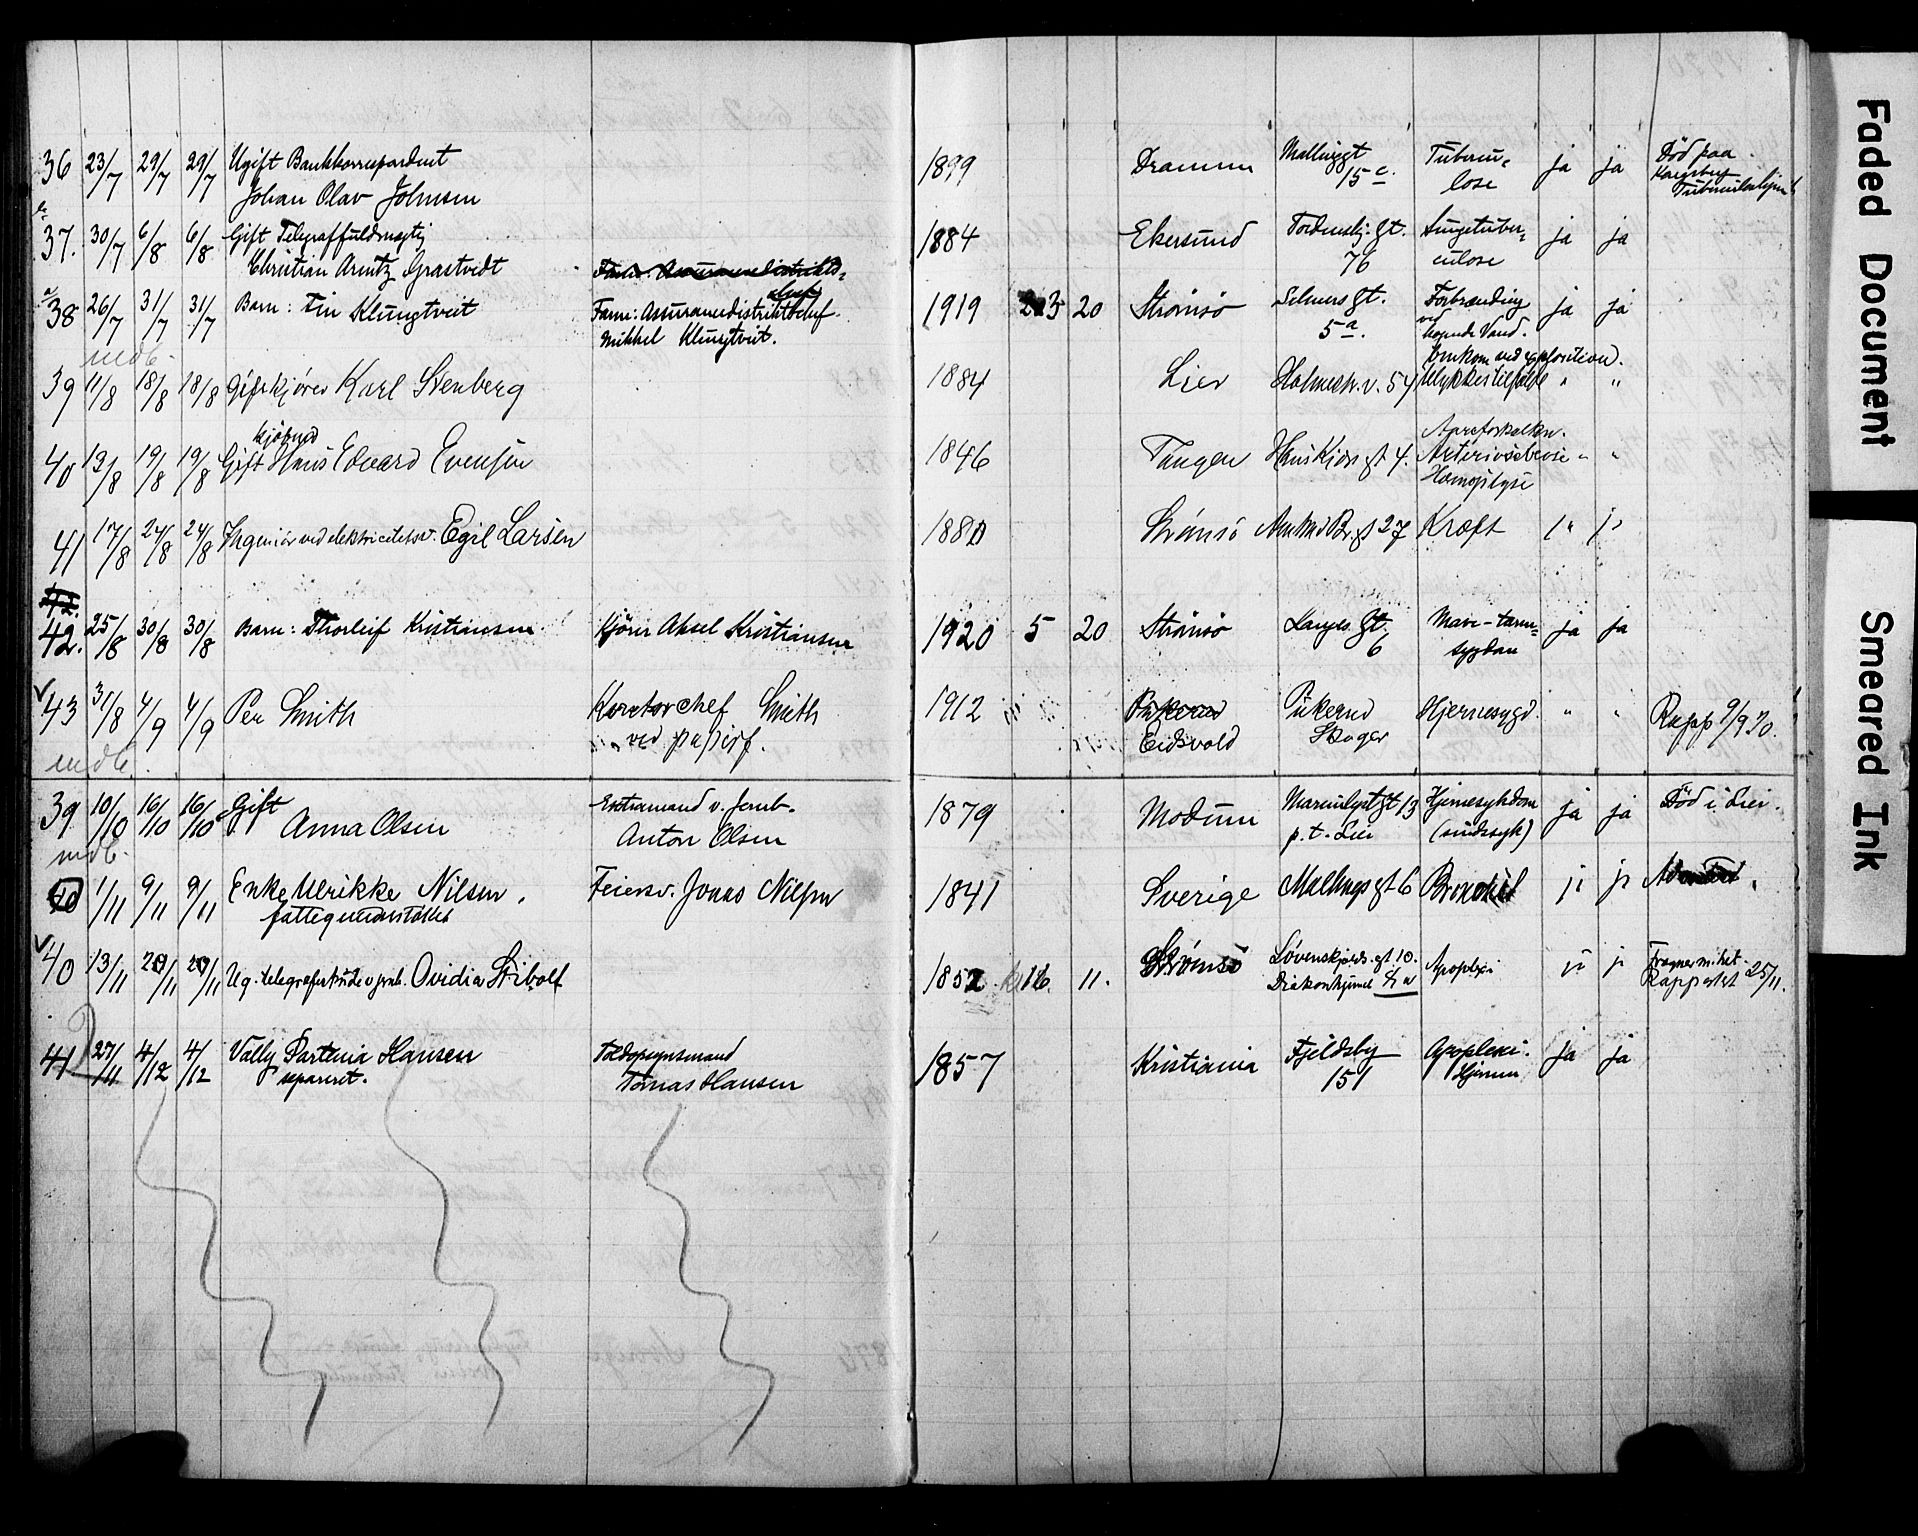 36 23/7 29/7 29/7 Ugift Bankkorrespondent 1899 Drammen Mallingsgt Tubercu- ja ja Død paa
Johan Olav Johnsen 15 c. lose Tuberculosehjem
37. 30/7 6/8 6/8 Gift Telegraffuldmægtig 1884 Ekersund Tordenskj. gt. Lungetuber- ja ja
Christian Arntz Grastvedt 76 culose
38 26/7 31/7 31/7 Barn: Klungtveit Farm: Assurancedistriktschef 1919 3 20 Strømsø Selmers gt. Forbrænding ja ja
Mikkel Klungtveit. 5 a. ved kogende Vand.
mdb. Omkom ved explosition.
39 11/8 18/8 18/8 Gift kjører Karl Stenberg 1884 Lier Holmestr. v. 54 Ulykkestilfelde " "
kjøbmd
40 13/8 19/8 19/8 Gift Hans Edvard Evensen 1846 Tangen Hans Kiærs gt 4. "  "
Hæmoptyse
41 17/8 24/8 24/8 Ingeniør ved elektricitetsv. Egil Larsen 1880 Strømsø Br. gt 27 Kræft
42. 25/8 30/8 30/8 Barn: Thorleif Kristiansen Kjører Aksel Kristiansen 1920 5 20 Strømsø Langes Gt. Mave-tarm- ja ja
6 sygdom
43 31/8 4/9 4/9 Per Smith Kontorchef Smith 1912 Pukerud Pukerud Hjernesygd. " " Rapp 9/9 20.
mdb. ved papirf. Eidsvold Skoger
39 10/10 16/10 16/10 Gift Extramand v. Jernb. 1879 Modum Marienlystgt 13 Hjernesykdom ja ja Død i Lier.
Anna Olsen Anton Olsen p. t. Lier (sindssyk)
mdb.
40 1/11 9/11 9/11 Enke Ulrikke Nilsen, Feiersv. Jonas Nilsen 1841 Sverige Mallings gt 6 Bronchit ja ja
fattigunderstøttet
40 13/11 20/11 20/11 Ug. telegraferkude v jernb. Ovidia Stibolt 1852 16. 11. Strømsø Løvenskjolds. gt 10. Apoplexi ja ja
Diakonhjemmet Rapportert 25/11.
41 27/11 4/12 4/12 Vally Partenia Hansen Toldopsynsmand 1857 Kristiania Fjeldsby Apoplexi. ja ja
separeret. Tomas Hansen 151 Hjernen
Faded Document
Smeared Ink